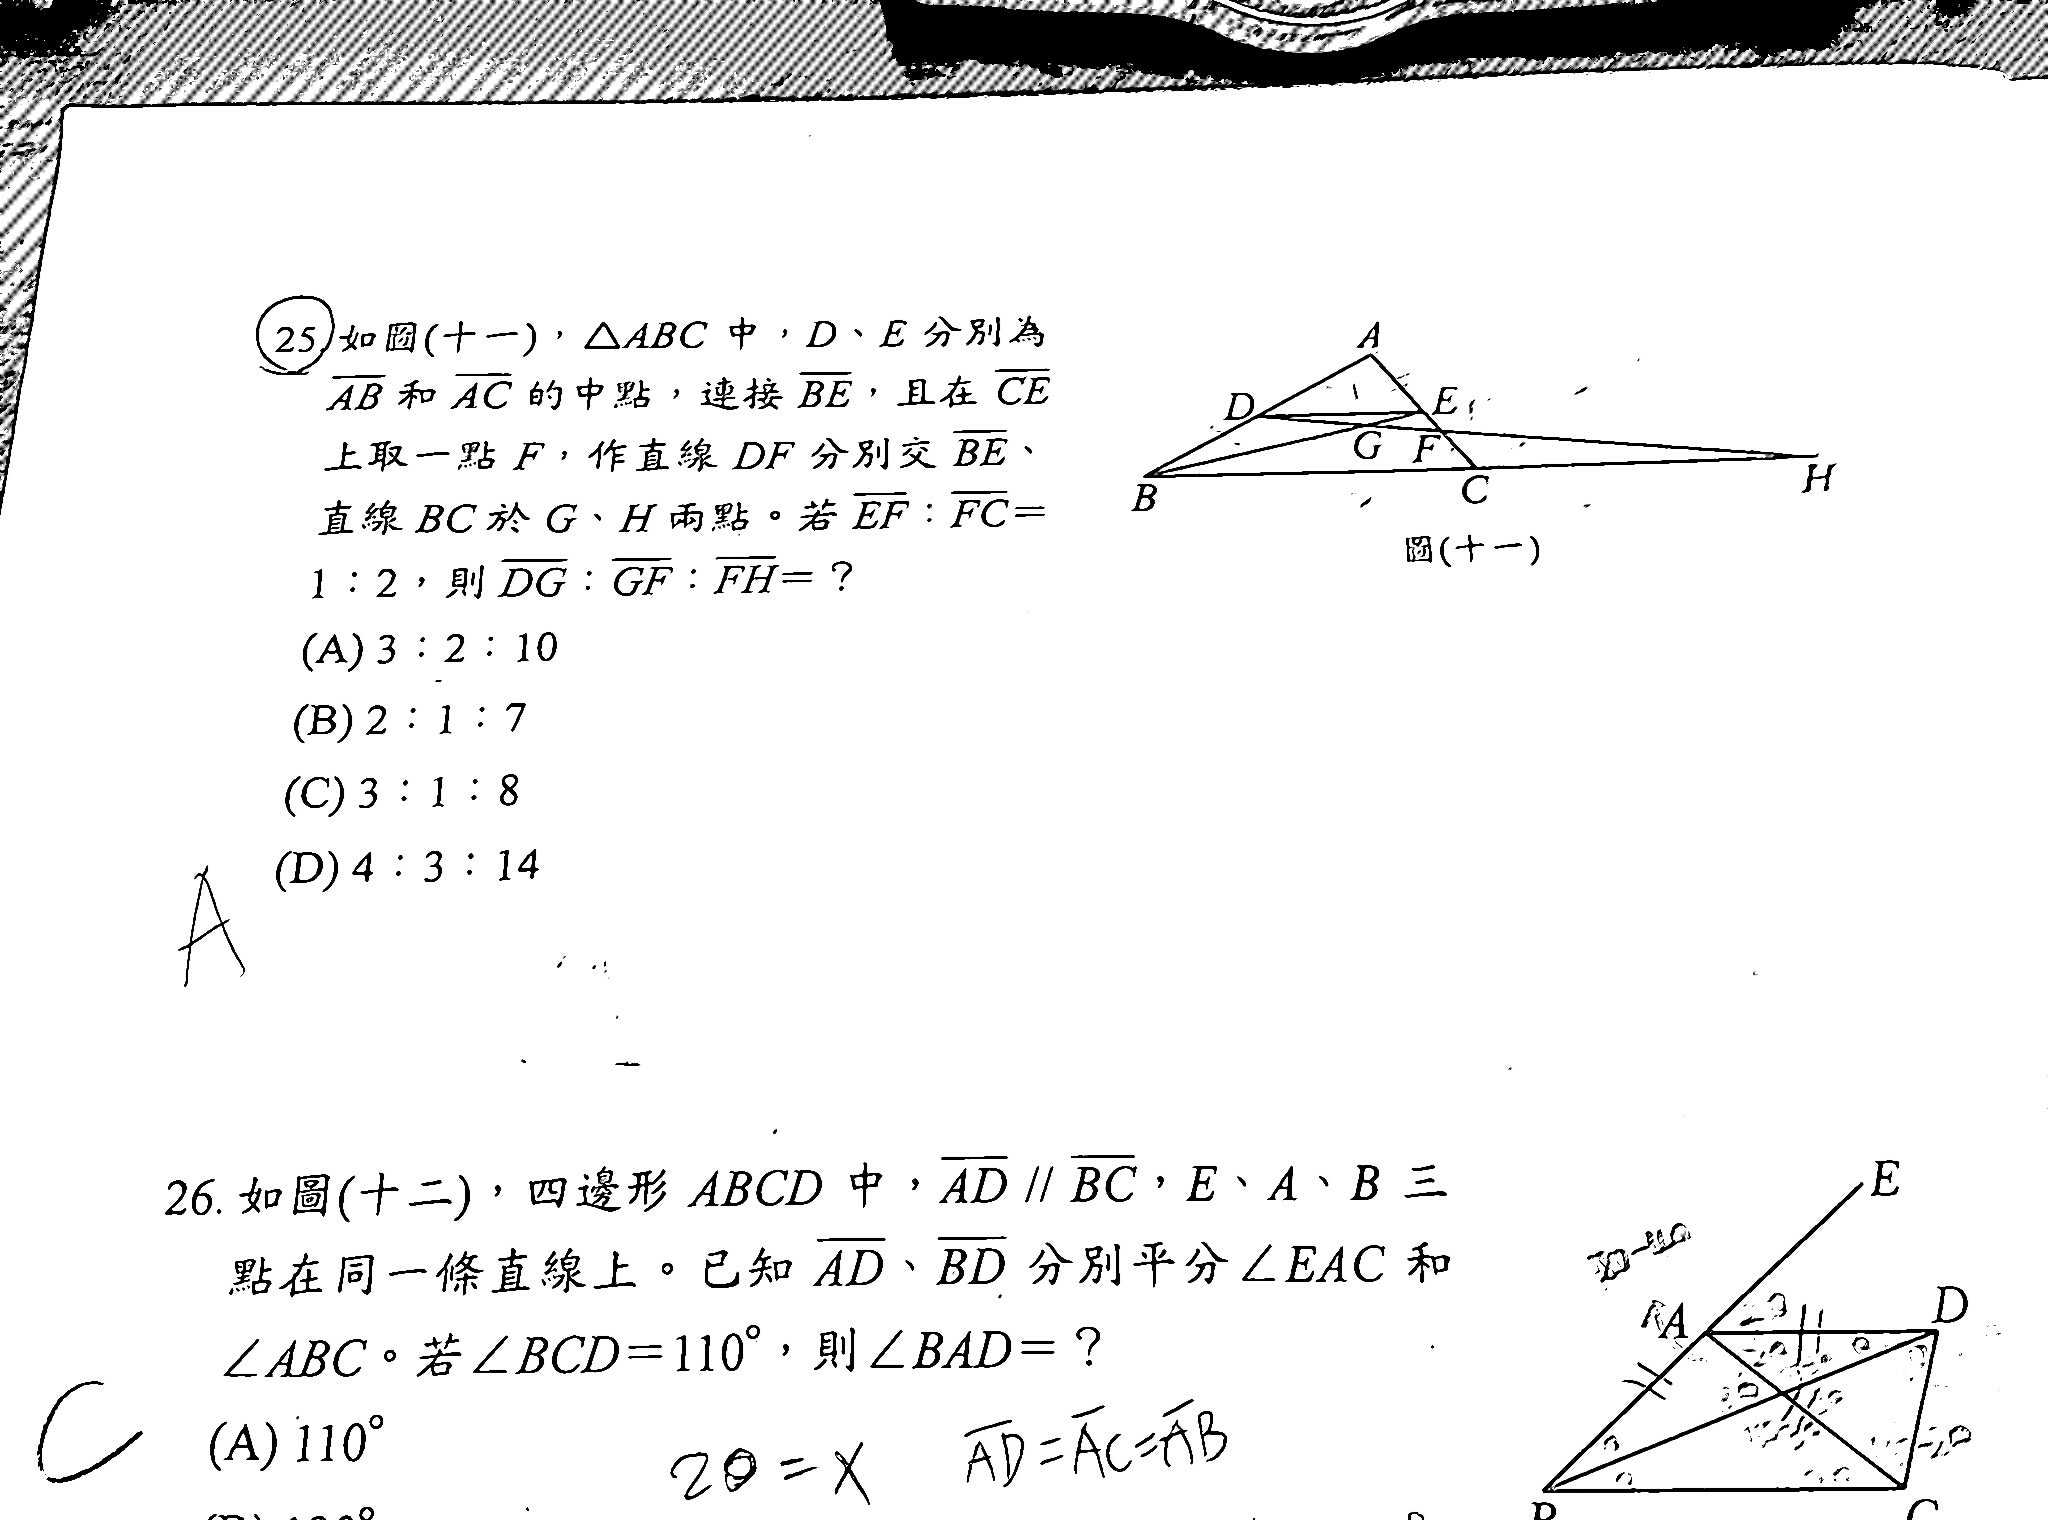 25. 如圖(十一)，△ABC 中，D、E 分別為
AB 和 AC 的中點，連接 BE，且在 CE
上取一點 F，作直線 DF 分別交 BE、
直線 BC 於 G、H 兩點。若 EF：FC＝
1：2，則 DG：GF：FH＝？
(A) 3：2：10
(B) 2：1：7
(C) 3：1：8
(D) 4：3：14
A
A
D
E
G
F
B
C
H
圖(十一)
26. 如圖(十二)，四邊形 ABCD 中，AD // BC，E、A、B 三
點在同一條直線上。已知 AD、BD 分別平分∠EAC 和
∠ABC。若∠BCD＝110°，則∠BAD＝？
(A) 110°
C
2θ = x
AD = AC = AB
E
A
D